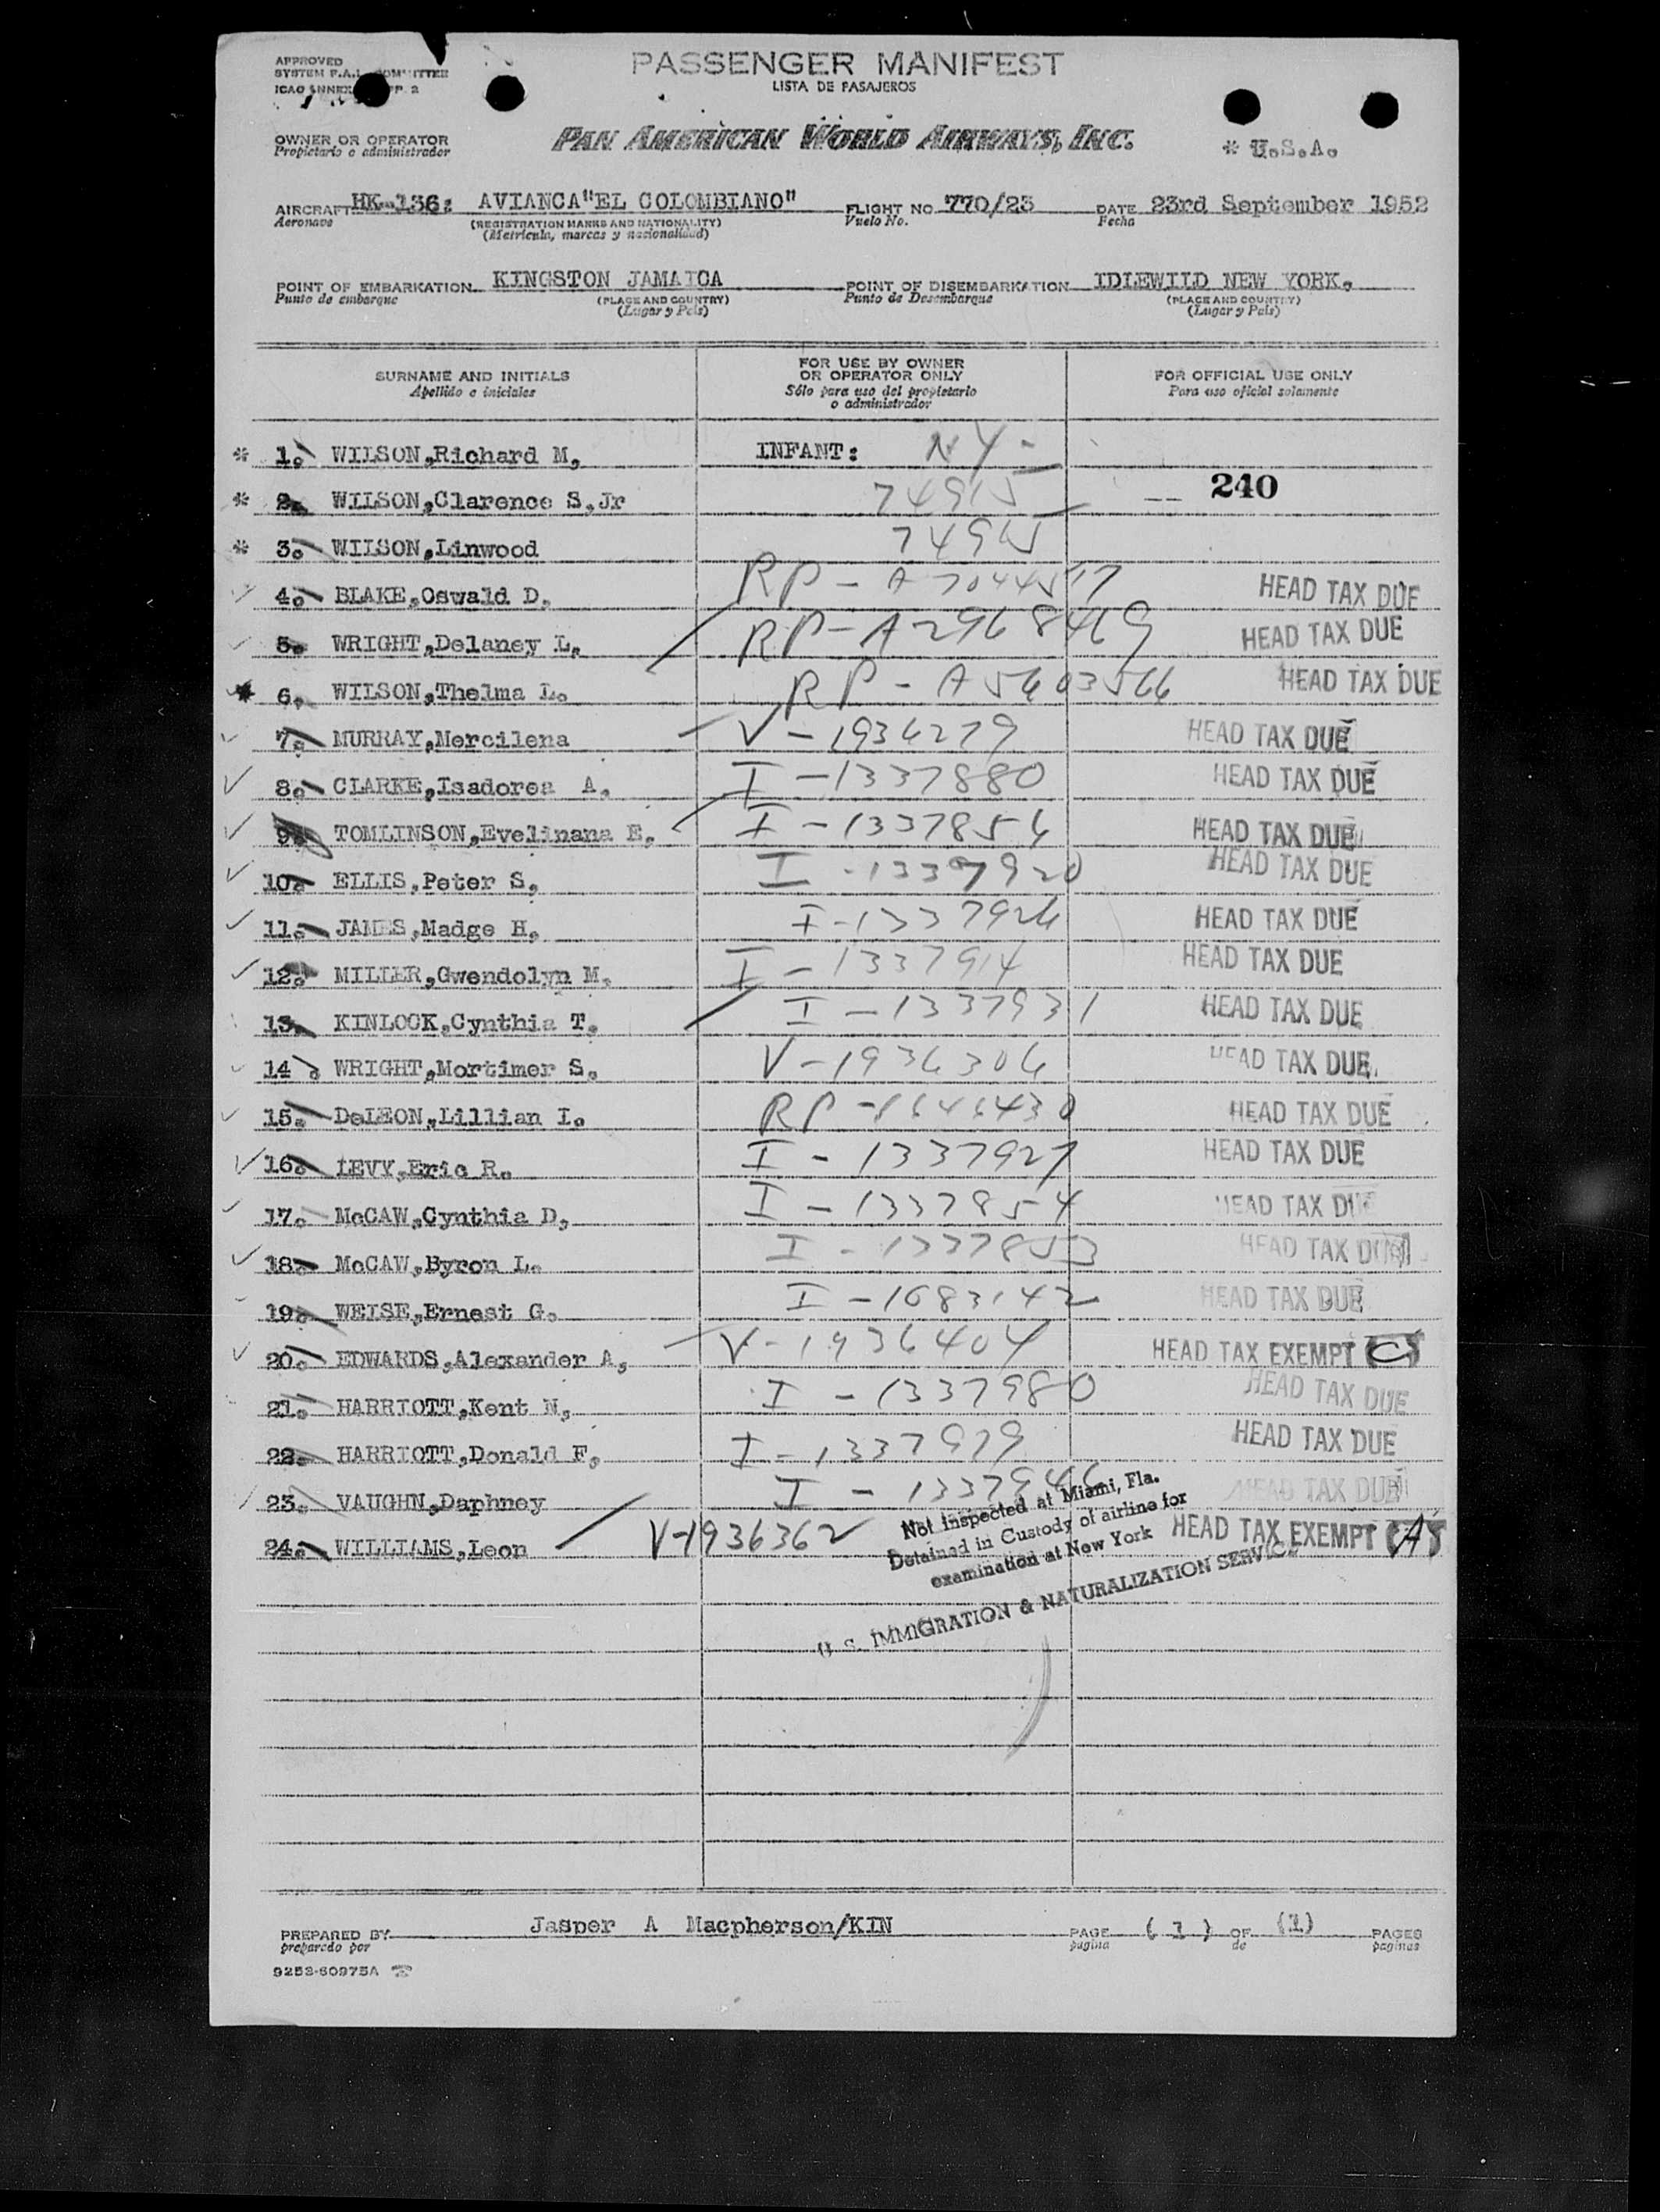 APPROVED
SYSTEM F.A.L. COMMITTEE
ICAO ANNEX
PASSENGER MANIFEST
LISTA DE PASAJEROS
OWNER OR OPERATOR
Propietario o administrador
PAN AMERICAN WORLD AIRWAYS, INC.
* U.S.A.
AIRCRAFT HK-136: AVIANCA"EL COLOMBIANO" FLIGHT NO 770/23 DATE 23rd September 1952
Aeronave (REGISTRATION MARKS AND NATIONALITY) Vuelo No. Fecha
(Matricula, marcas y nacionalidad)
POINT OF EMBARKATION KINGSTON JAMAICA POINT OF DISEMBARKATION IDLEWILD NEW YORK.
Punto de embarque (PLACE AND COUNTRY) Punto de Desembarque (PLACE AND COUNTRY)
(Lugar y País) (Lugar y País)
SURNAME AND INITIALS FOR USE BY OWNER OR OPERATOR ONLY FOR OFFICIAL USE ONLY
Apellido e iniciales Sólo para uso del propietario o administrador Para uso oficial solamente
* 1. WILSON,Richard M. INFANT: NY-
* 2. WILSON,Clarence S.Jr 74915 240
* 3. WILSON,Linwood 74915
4. BLAKE,Oswald D. RP-A7044517 HEAD TAX DUE
5. WRIGHT,Delaney L. RP-A2968469 HEAD TAX DUE
* 6. WILSON,Thelma L. RP-A5603566 HEAD TAX DUE
7. MURRAY,Mercilena V-1936279 HEAD TAX DUE
8. CLARKE,Isadorea A. I-1337880 HEAD TAX DUE
9. TOMLINSON,Evelinana E. I-1337856 HEAD TAX DUE
10. ELLIS,Peter S. I-1337920 HEAD TAX DUE
11. JAMES,Madge H. I-1337926 HEAD TAX DUE
12. MILLER,Gwendolyn M. I-1337914 HEAD TAX DUE
13. KINLOCK,Cynthia T. I-1337931 HEAD TAX DUE
14. WRIGHT,Mortimer S. V-1936306 HEAD TAX DUE
15. DeLEON,Lillian I. RP-1646430 HEAD TAX DUE
16. LEVY,Eric R. I-1337927 HEAD TAX DUE
17. McCAW,Cynthia D. I-1337854 HEAD TAX DUE
18. McCAW,Byron L. I-1337853 HEAD TAX DUE
19. WEISE,Ernest G. I-1683142 HEAD TAX DUE
20. EDWARDS,Alexander A. V-1936404 HEAD TAX EXEMPT (C)
21. HARRIOTT,Kent N. I-1337980 HEAD TAX DUE
22. HARRIOTT,Donald F. I-1337979 HEAD TAX DUE
23. VAUGHN,Daphney HEAD TAX DUE
24. WILLIAMS,Leon V-1936362 HEAD TAX EXEMPT (A)
Not Inspected at Miami, Fla.
Detained in Custody of airline for
examination at New York
U. S. IMMIGRATION & NATURALIZATION SERVICE
PREPARED BY Jasper A Macpherson/KIN PAGE (1) OF (1) PAGES
preparado por pagina de paginas
9253-60975A